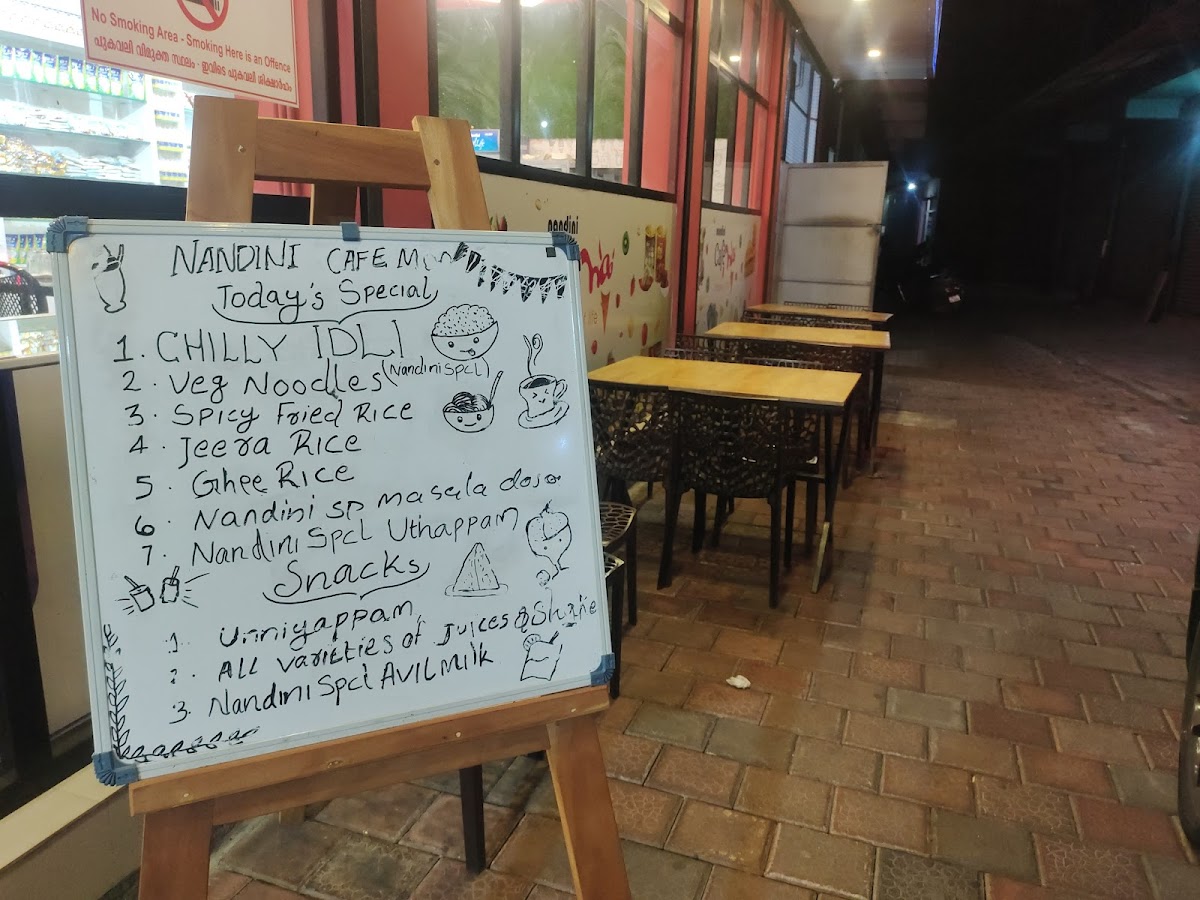 No Smoking Area - Smoking Here is an Offence
പുകവലി വിമുക്ത സ്ഥലം - ഇവിടെ പുകവലി ശിക്ഷാർഹം
NANDINI CAFE
Today's Special
1. CHILLY IDLI
2. Veg Noodles (Nandini Spcl)
3. Spicy Fried Rice
4. Jeera Rice
5. Ghee Rice
6. Nandini sp masala dosa
7. Nandini Spcl Uthappam
Snacks
1. Unniyappam
2. All varieties of Juices & Shake
3. Nandini Spcl AVILMilk
nandini
nandini
Cafe